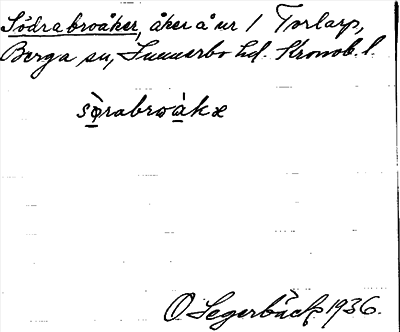 Södra broåker, åker å nr 1 Torlarp,
Berga sn, Sunnerbo hd. Kronob. l.
sø̀rabroàkæ
O Segerbäck 1936.